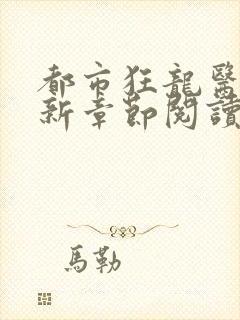 都市狂龍醫
新章節閱讀
馬勒